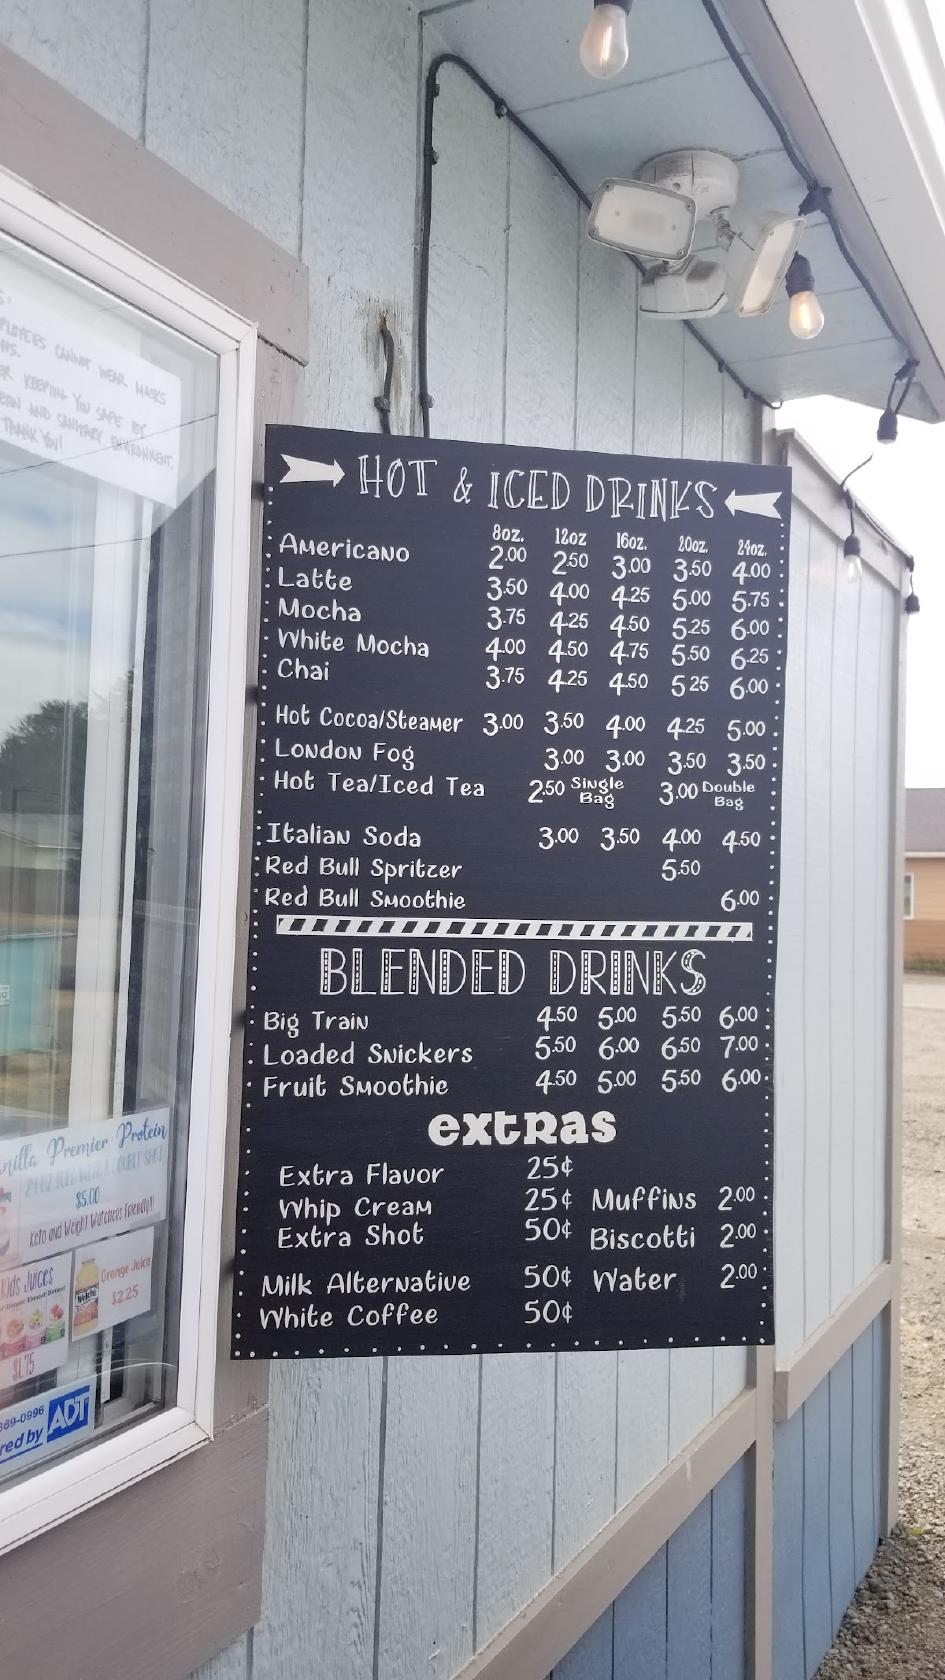 PLOYEES CANNOT WEAR MASKS
KEEPING YOU SAFE BY
AND SANITARY ENVIRONMENT.
THANK YOU!
HOT & ICED DRINKS
8oz. 12oz 16oz. 20oz. 24oz.
Americano 2.00 2.50 3.00 3.50 4.00
Latte 3.50 4.00 4.25 5.00 5.75
Mocha 3.75 4.25 4.50 5.25 6.00
White Mocha 4.00 4.50 4.75 5.50 6.25
Chai 3.75 4.25 4.50 5.25 6.00
Hot Cocoa/Steamer 3.00 3.50 4.00 4.25 5.00
London Fog 3.00 3.00 3.50 3.50
Hot Tea/Iced Tea 2.50 Single Bag 3.00 Double Bag
Italian Soda 3.00 3.50 4.00 4.50
Red Bull Spritzer 5.50
Red Bull Smoothie 6.00
BLENDED DRINKS
Big Train 4.50 5.00 5.50 6.00
Loaded Snickers 5.50 6.00 6.50 7.00
Fruit Smoothie 4.50 5.00 5.50 6.00
extras
Extra Flavor 25¢
Whip Cream 25¢ Muffins 2.00
Extra Shot 50¢ Biscotti 2.00
Milk Alternative 50¢ Water 2.00
White Coffee 50¢
nilla Premier Protein
24 OZ ICED WITH A DOUBLE SHOT
$5.00
Keto and Weight Watchers Friendly!!
Kids Juices
$1.75
Orange Juice
Welch's
$2.25
369-0996
red by ADT